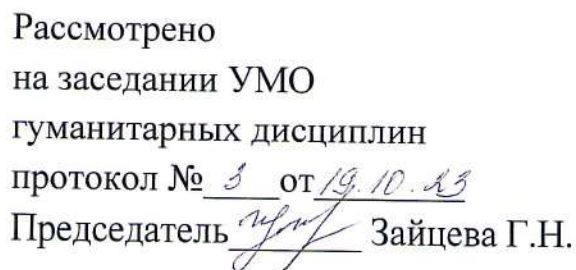 Рассмотрено
на заседании УМО
гуманитарных дисциплин
протокол № 3 от 19.10.23
Председатель Зайцева Г.Н.